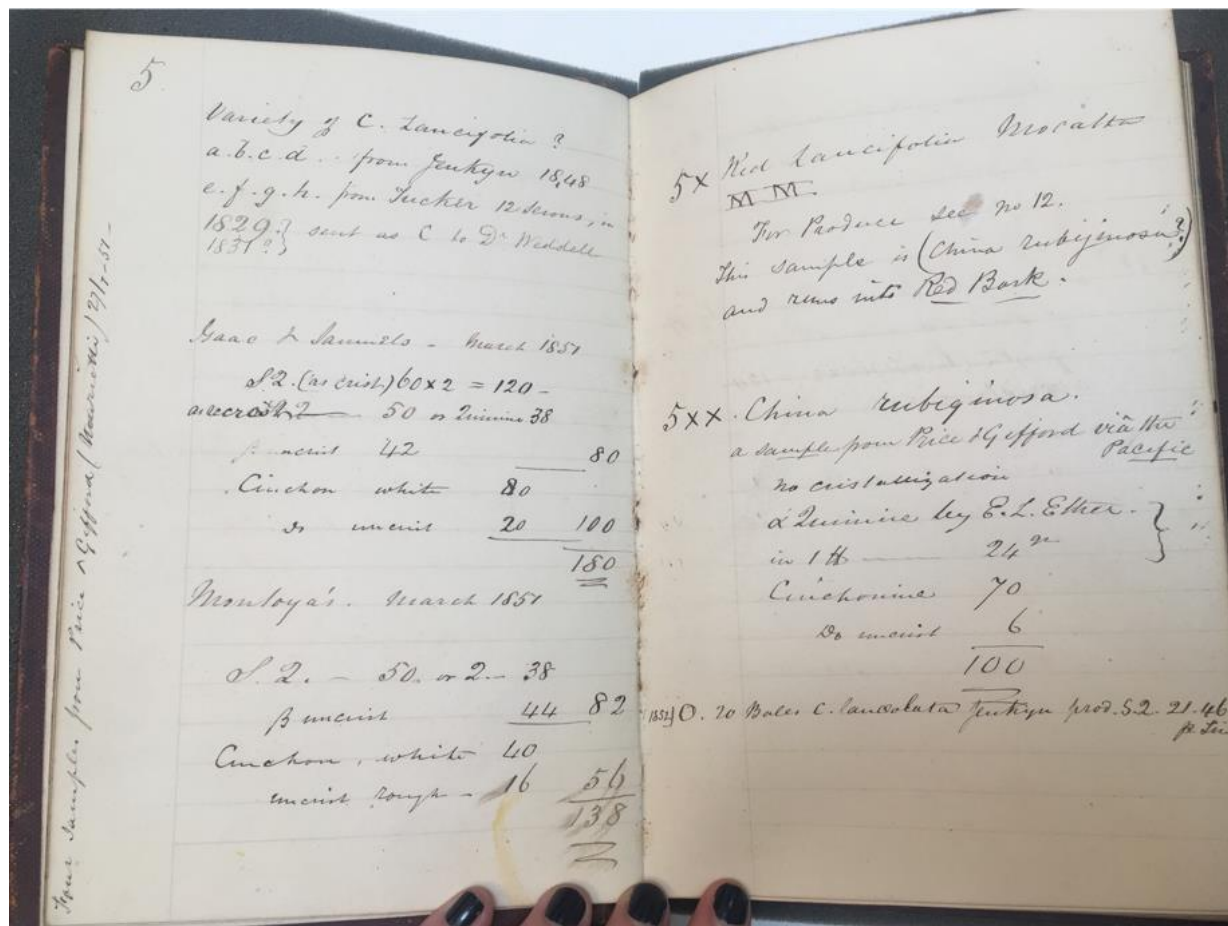 5
Variety of C. Lancifolia ?
a.b.c.d.. from Jenkyn 1848
e.f.g.h. from Tucker 12 Serons, in
1829 ? } sent as C to Dr Weddell
1831 ? }
Isaac & Samuels - March 1851
S.2. (as crist) 60 x 2 = 120 -
50 or Quinine 38
β uncrist 42 80
Cinchon white 80
Do uncrist 20 100
180
Montoya's. March 1851
S. 2. - 50. or 2. - 38
β uncrist 44 82
Cinchon, white 40
uncrist rough - 16 56
138
Four Samples from Price & Gifford (Mariotti) 27/5-51-
5x Red Lancifolia Mocatta
M M.
For Produce see no 12.
This sample is (China rubiginosa ?)
and runs into Red Bark.
5xx. China rubiginosa.
a sample from Price & Gifford viâ the
Pacific
no cristallization
α Quinine by E.L. Ether.
in 1 ℔ — 24 gr
Cinchonine 70
Do uncrist 6
100
1852] O. 20 Bales C. lanceolata Jenkyn prod. S.2. 21.46